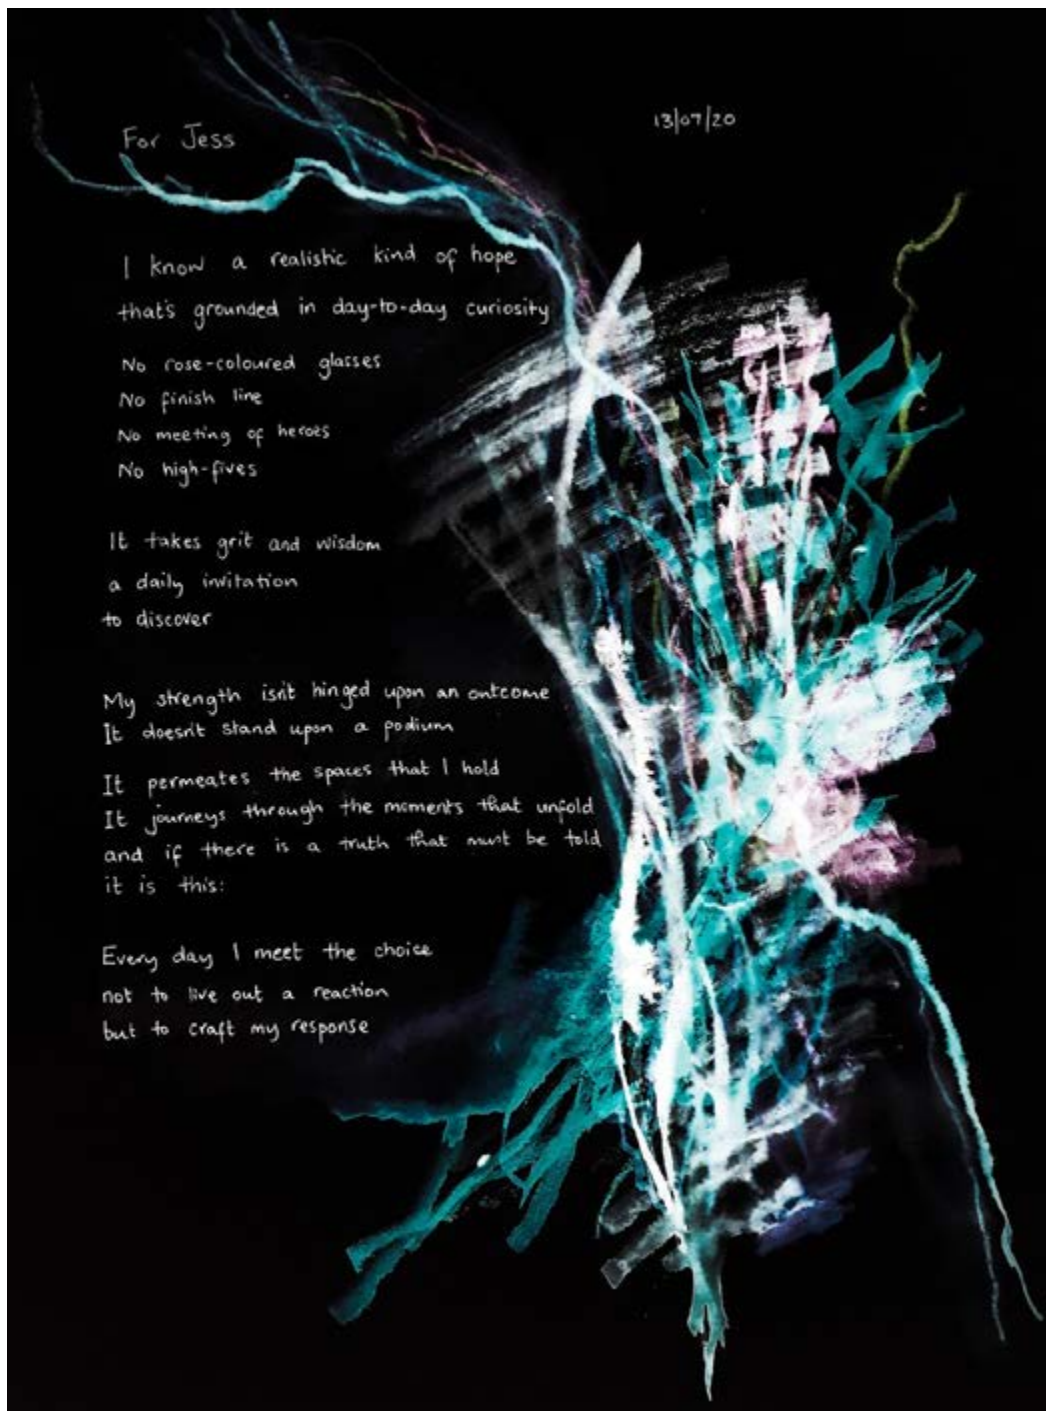 For Jess
13/07/20
I know a realistic kind of hope
that's grounded in day-to-day curiosity
No rose-coloured glasses
No finish line
No meeting of heroes
No high-fives
It takes grit and wisdom
a daily invitation
to discover
My strength isn't hinged upon an outcome
It doesn't stand upon a podium
It permeates the spaces that I hold
It journeys through the moments that unfold
and if there is a truth that must be told
it is this:
Every day I meet the choice
not to live out a reaction
but to craft my response